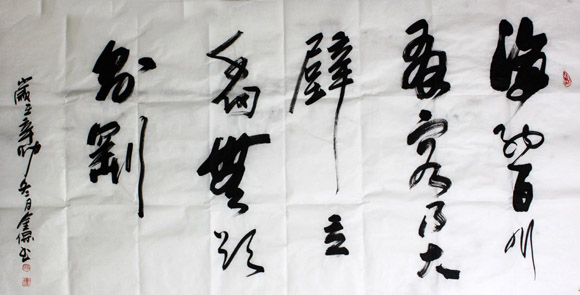 海纳百川
有容乃大
壁立
千仞無欲
则剛
歲在辛卯冬月金保书